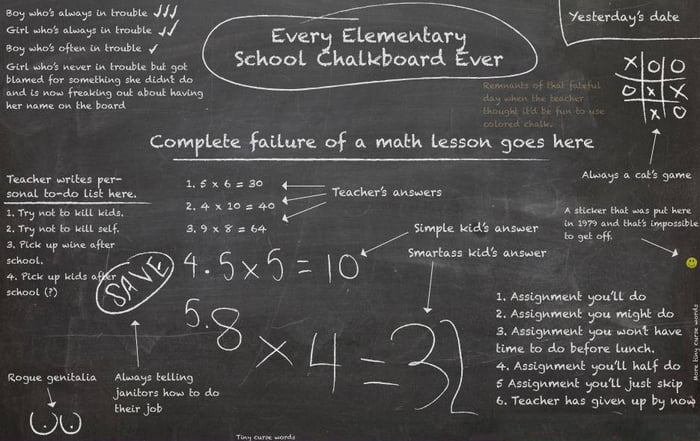 Boy who's always in trouble ✓✓✓
Girl who's always in trouble ✓✓
Boy who's often in trouble ✓
Girl who's never in trouble but got
blamed for something she didn't do
and is now freaking out about having
her name on the board
Every Elementary
School Chalkboard Ever
Yesterday's date
X O O
O X X
X O
Remnants of that fateful
day when the teacher
thought it'd be fun to use
colored chalk.
Always a cat's game
Complete failure of a math lesson goes here
Teacher writes per-
sonal to-do list here.
1. Try not to kill kids.
2. Try not to kill self.
3. Pick up wine after
school.
4. Pick up kids after
school (?)
SAVE
1. 5 x 6 = 30
2. 4 x 10 = 40
3. 9 x 8 = 64
Teacher's answers
4. 5 x 5 = 10
Simple kid's answer
5. 8 x 4 = 32
Smartass kid's answer
A sticker that was put here
in 1979 and that's impossible
to get off.
1. Assignment you'll do
2. Assignment you might do
3. Assignment you won't have
time to do before lunch.
4. Assignment you'll half do
5 Assignment you'll just skip
6. Teacher has given up by now
More tiny curse words
Rogue genitalia
Always telling
janitors how to do
their job
Tiny curse words